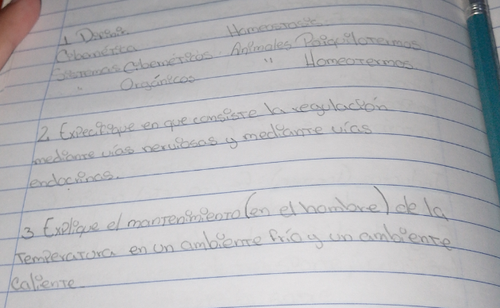 1. Homeostasis
Cibernética
Sistemas Cibernéticos Animales Poiquilotermos
" Orgánicos " Homeotermos
2. Especifique en que consiste la regulación
mediante vías nerviosas y mediante vías
endocrinas.
3 Explique el mantenimiento (en el hombre) de la
Temperatura en un ambiente frío y un ambiente
caliente.